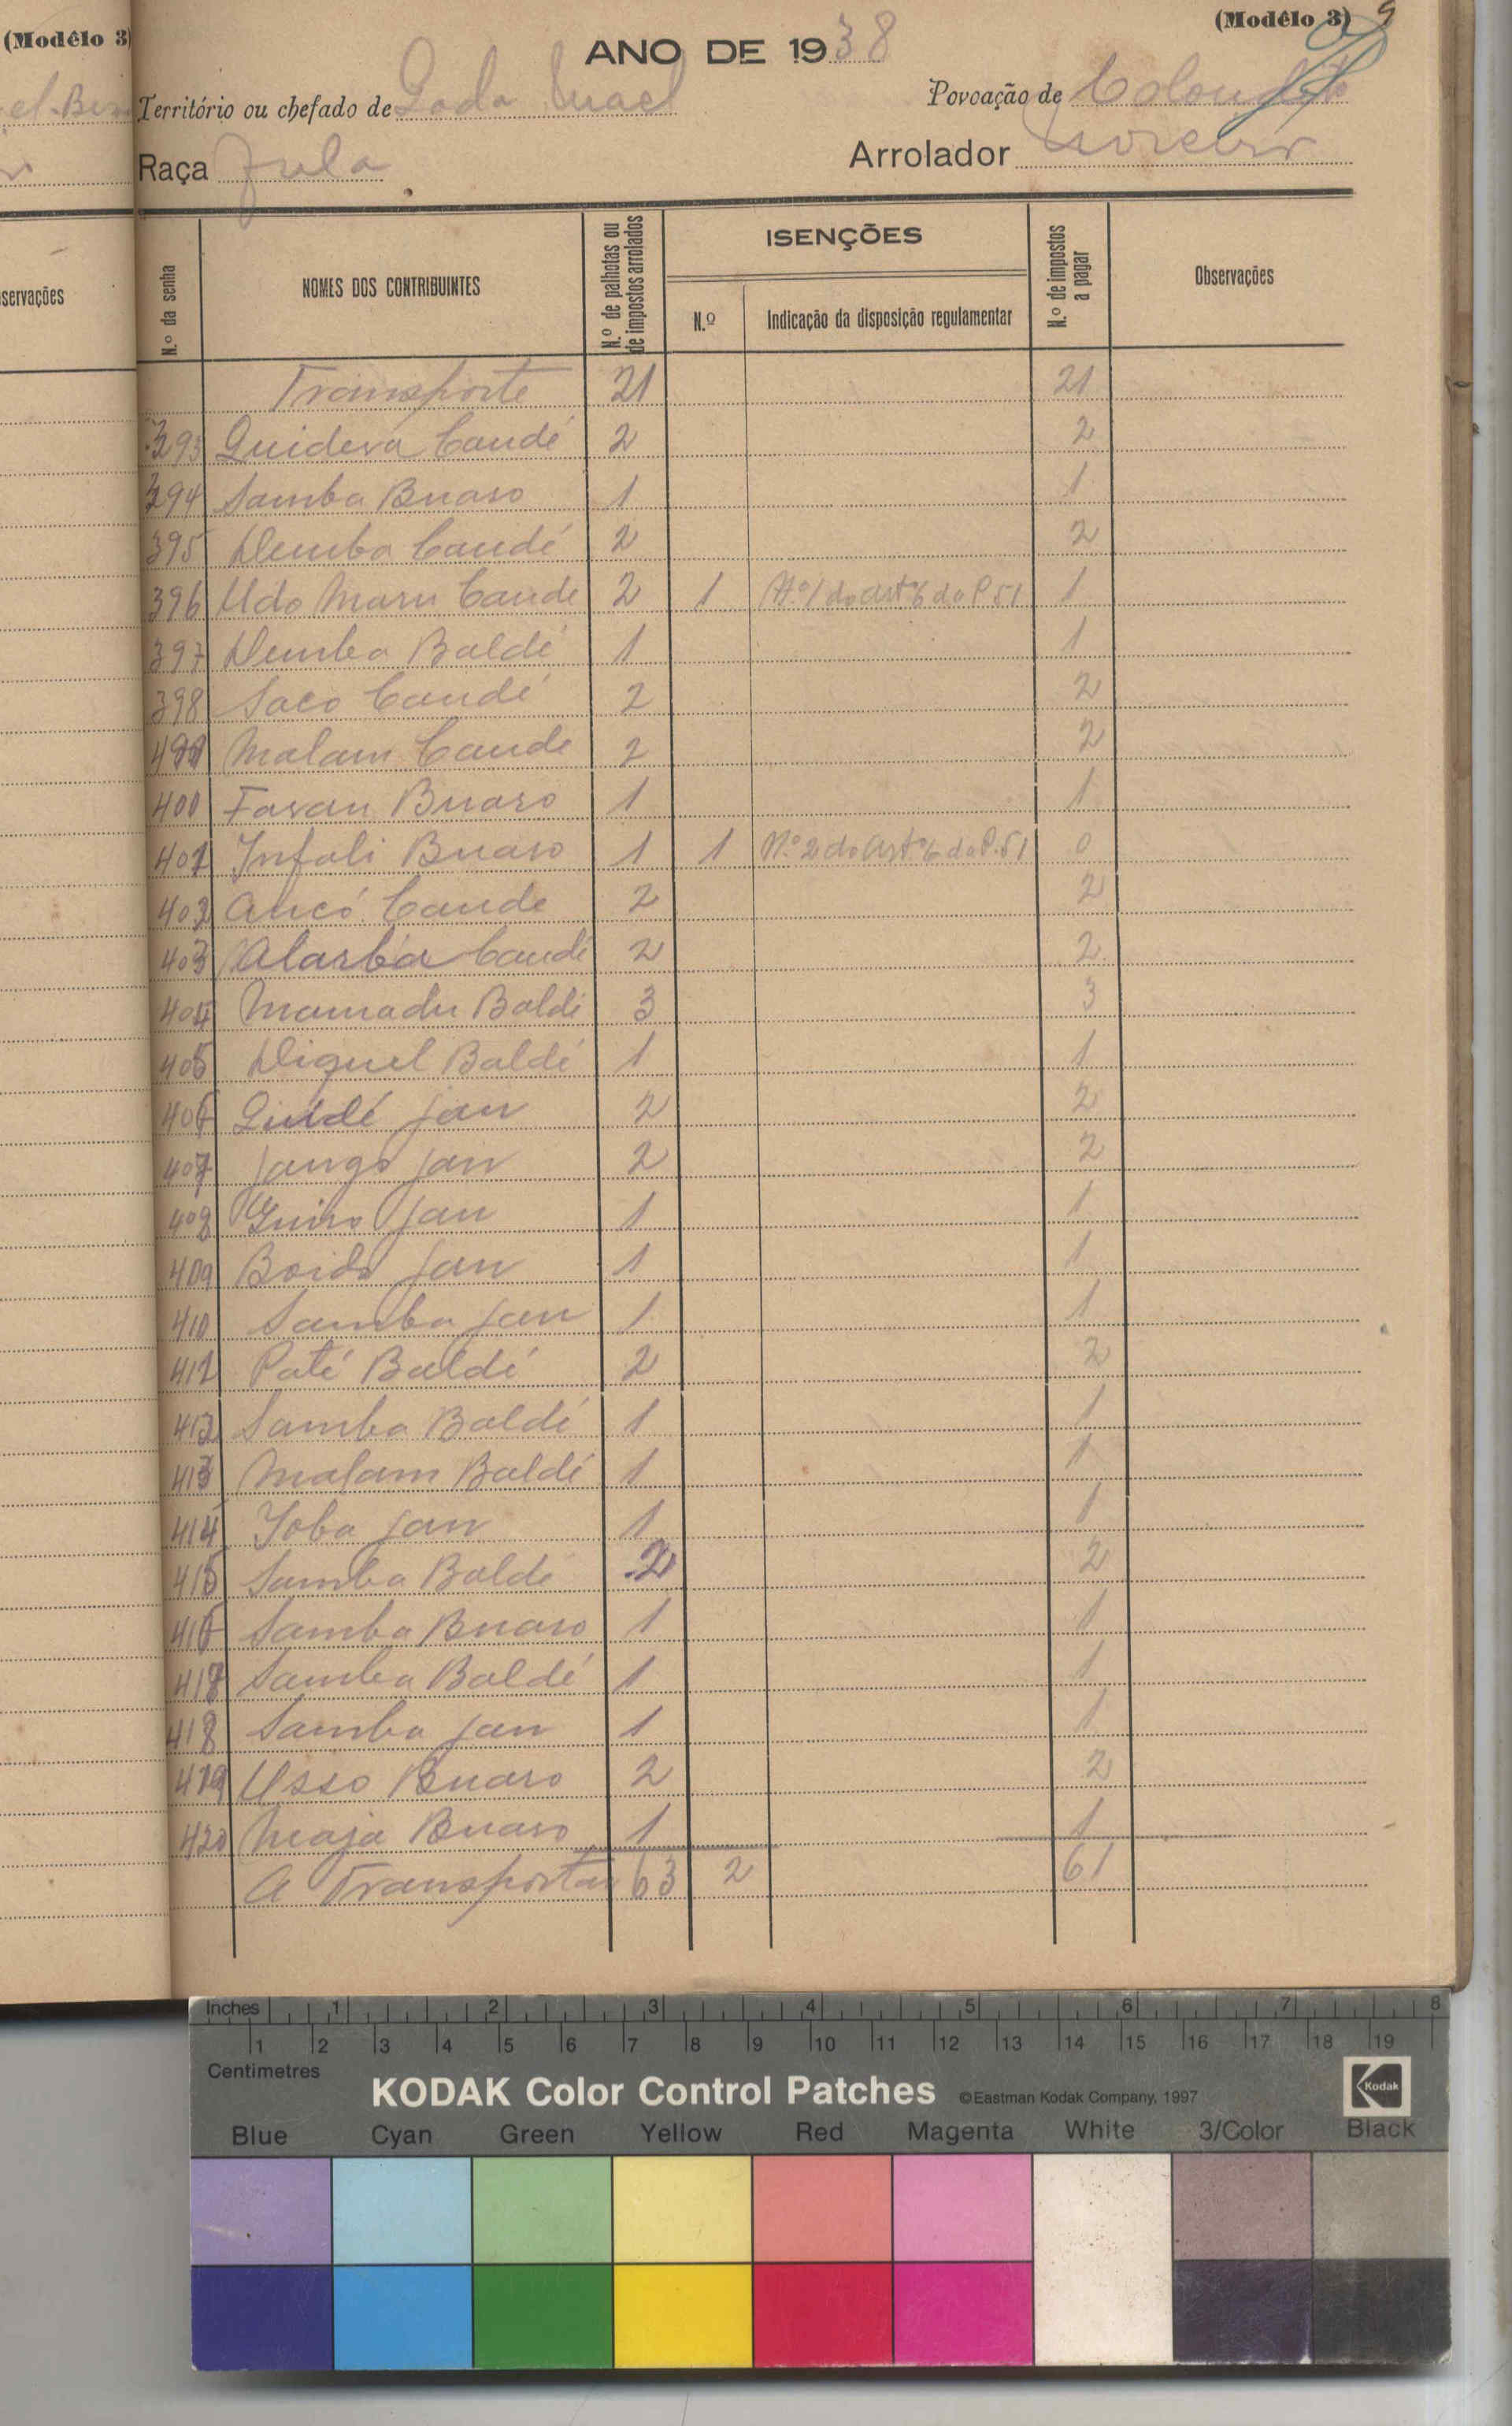 (Modêlo 3)
servações
(Modêlo 3) 9
ANO DE 1938
Território ou chefado de
Povoação de
Raça Fula
Arrolador
N.º da senha
NOMES DOS CONTRIBUINTES
N.º de palhotas ou de impostos arrolados
ISENÇÕES
N.º
Indicação da disposição regulamentar
N.º de impostos a pagar
Observações
Transporte 21 21
393 Quidera Candé 2 2
394 Samba Buaro 1 1
395 Demba Candé 2 2
396 Udo Maru Cande 2 1 N.º 1 do art.º 6 do P. 51 1
397 Demba Baldé 1 1
398 Saco Candé 2 2
499 Malam Cande 2 2
400 Faran Buaro 1 1
401 Infali Buaro 1 1 N.º 2 do art.º 6 do P. 51 0
402 Ancó Cande 2 2
403 Alarba Candé 2 2
404 Mamadu Baldé 3 3
405 Diguel Baldé 1 1
406 Quidé Jau 2 2
407 Jango Jau 2 2
408 Guiro Jau 1 1
409 Boido Jau 1 1
410 Samba Jau 1 1
411 Paté Baldé 2 2
412 Samba Baldé 1 1
413 Malam Baldé 1 1
414 Ioba Jau 1 1
415 Samba Balde 2 2
416 Samba Buaro 1 1
417 Samba Baldé 1 1
418 Samba Jau 1 1
419 Usso Buaro 2 2
420 Maja Buaro 1 1
A Transportar 63 2 61
Inches 1 2 3 4 5 6 7 8
1 2 3 4 5 6 7 8 9 10 11 12 13 14 15 16 17 18 19
Centimetres
KODAK Color Control Patches ©Eastman Kodak Company, 1997 Kodak
Blue Cyan Green Yellow Red Magenta White 3/Color Black